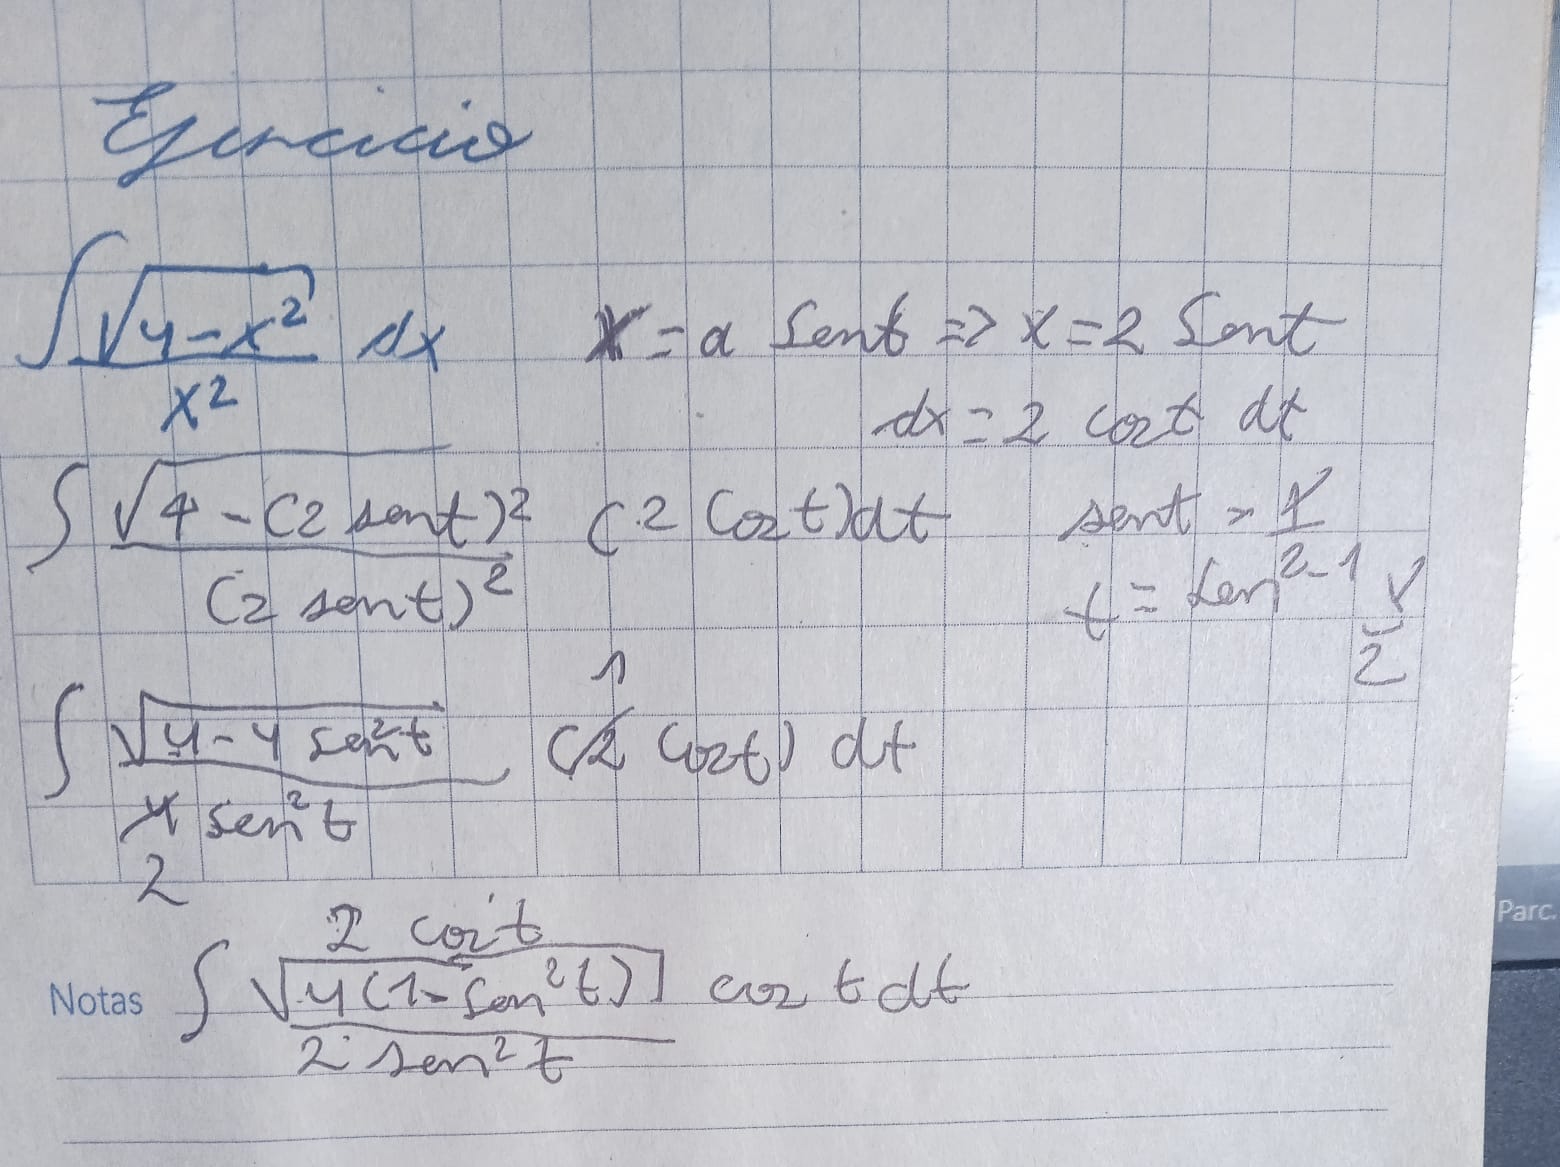 Ejercicio
∫ √(4-x²) / x² dx   x = a sent => x = 2 Sent
dx = 2 cost dt
∫ √(4-(2 sent)²) / (2 sent)² (2 cost) dt   sent = x/2
t = sen⁻¹ x/2
∫ √(4-4 sen²t) / 4 sen²t (2 cost) dt
1
2
2 cost
Notas ∫ √(4(1-sen²t)) / 2 sen²t cos t dt
Parc.